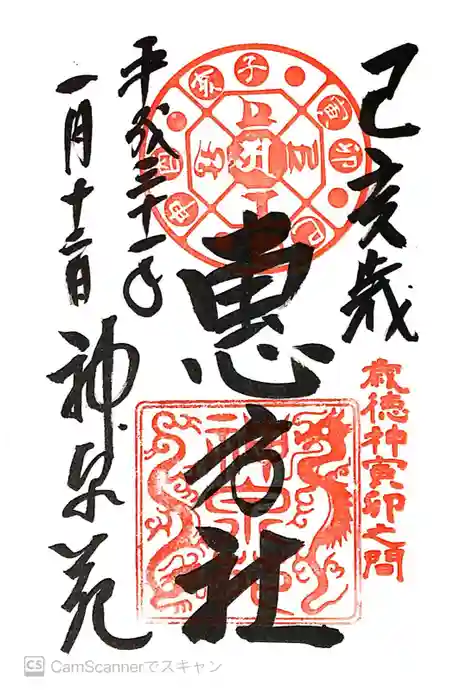 己亥歳
歳徳神寅卯之間
恵方社
平成三十一年
一月十二日
神泉苑
子
寅
卯
CS CamScannerでスキャン